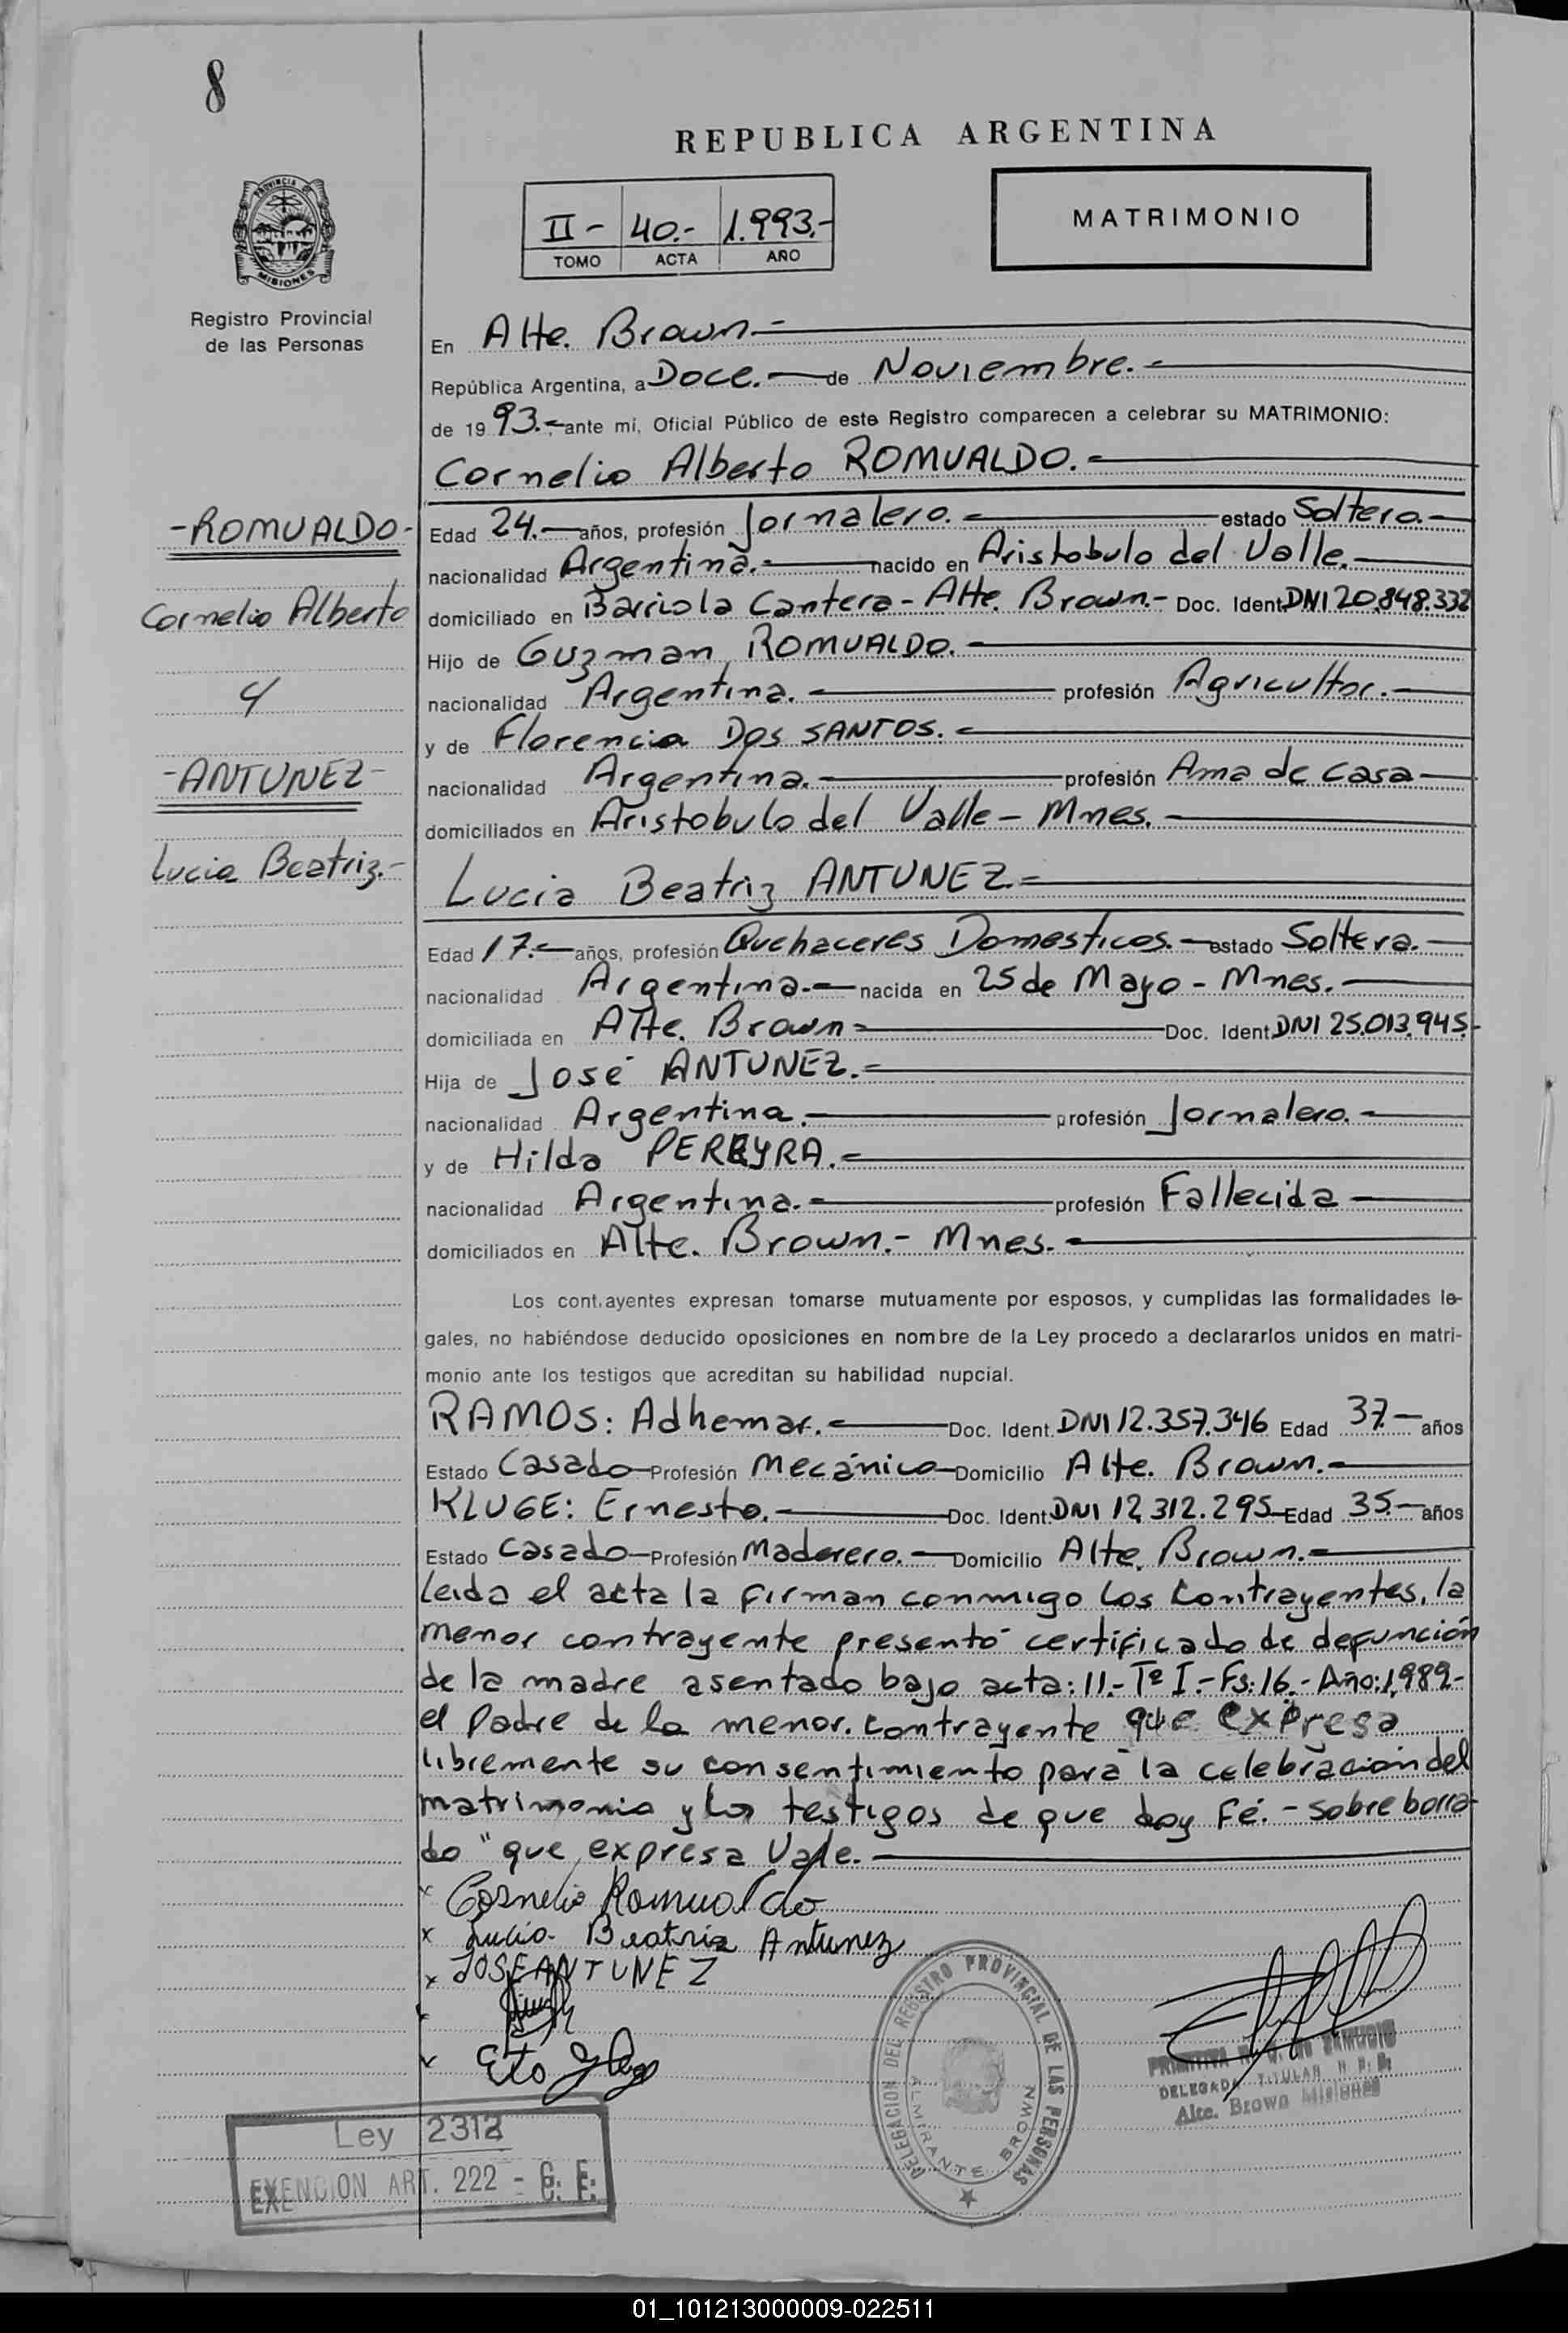 8
REPUBLICA ARGENTINA
PROVINCIA DE
MISIONES
II - 40.- 1.993.-
TOMO ACTA AÑO
MATRIMONIO
Registro Provincial
de las Personas
En Alte. Brown.-
República Argentina, a Doce.- de Noviembre.-
de 19 93.- ante mi, Oficial Público de este Registro comparecen a celebrar su MATRIMONIO:
Cornelio Alberto ROMUALDO.-
-ROMUALDO-
Cornelio Alberto
y
-ANTUNEZ-
Lucia Beatriz.-
Edad 24.- años, profesión Jornalero.- estado Soltero.-
nacionalidad Argentina.- nacido en Aristobulo del Valle.-
domiciliado en Barrio la Cantera - Alte. Brown.- Doc. Ident. DNI 20.848.332
Hijo de Guzman ROMUALDO.-
nacionalidad Argentina.- profesión Agricultor.-
y de Florencia Dos SANTOS.-
nacionalidad Argentina.- profesión Ama de casa-
domiciliados en Aristobulo del Valle - Mnes.-
Lucia Beatriz ANTUNEZ.-
Edad 17.- años, profesión Quehaceres Domesticos.- estado Soltera.-
nacionalidad Argentina.- nacida en 25 de Mayo - Mnes.-
domiciliada en Alte. Brown- Doc. Ident. DNI 25.013.945.-
Hija de José ANTUNEZ.-
nacionalidad Argentina.- profesión Jornalero.-
y de Hilda PEREYRA.-
nacionalidad Argentina.- profesión Fallecida-
domiciliados en Alte. Brown.- Mnes.-
Los contrayentes expresan tomarse mutuamente por esposos, y cumplidas las formalidades le-
gales, no habiéndose deducido oposiciones en nombre de la Ley procedo a declararlos unidos en matri-
monio ante los testigos que acreditan su habilidad nupcial.
RAMOS: Adhemar.- Doc. Ident. DNI 12.357.346 Edad 37.- años
Estado Casado- Profesión Mecánico- Domicilio Alte. Brown.-
KLUGE: Ernesto.- Doc. Ident. DNI 12.312.295- Edad 35.- años
Estado Casado- Profesión Maderero.- Domicilio Alte. Brown.-
Leida el acta la firman conmigo los contrayentes, la
menor contrayente presentó certificado de defunción
de la madre asentado bajo acta: 11.- Tº I.- Fs: 16.- Año: 1.989-
el Padre de la menor contrayente que expresa
libremente su consentimiento para la celebración del
matrimonio y los testigos de que doy Fé.- sobre borra-
do "que expresa Vale.-
x Cornelio Romualdo
x Lucia Beatriz Antunez
x JOSE ANTUNEZ
DELEGACION DEL REGISTRO PROVINCIAL DE LAS PERSONAS
ALMIRANTE BROWN
DELEGADA TITULAR R. P. P.
Alte. Brown Misiones
Ley 2312
EXENCION ART. 222 - C. F.
01_101213000009-022511